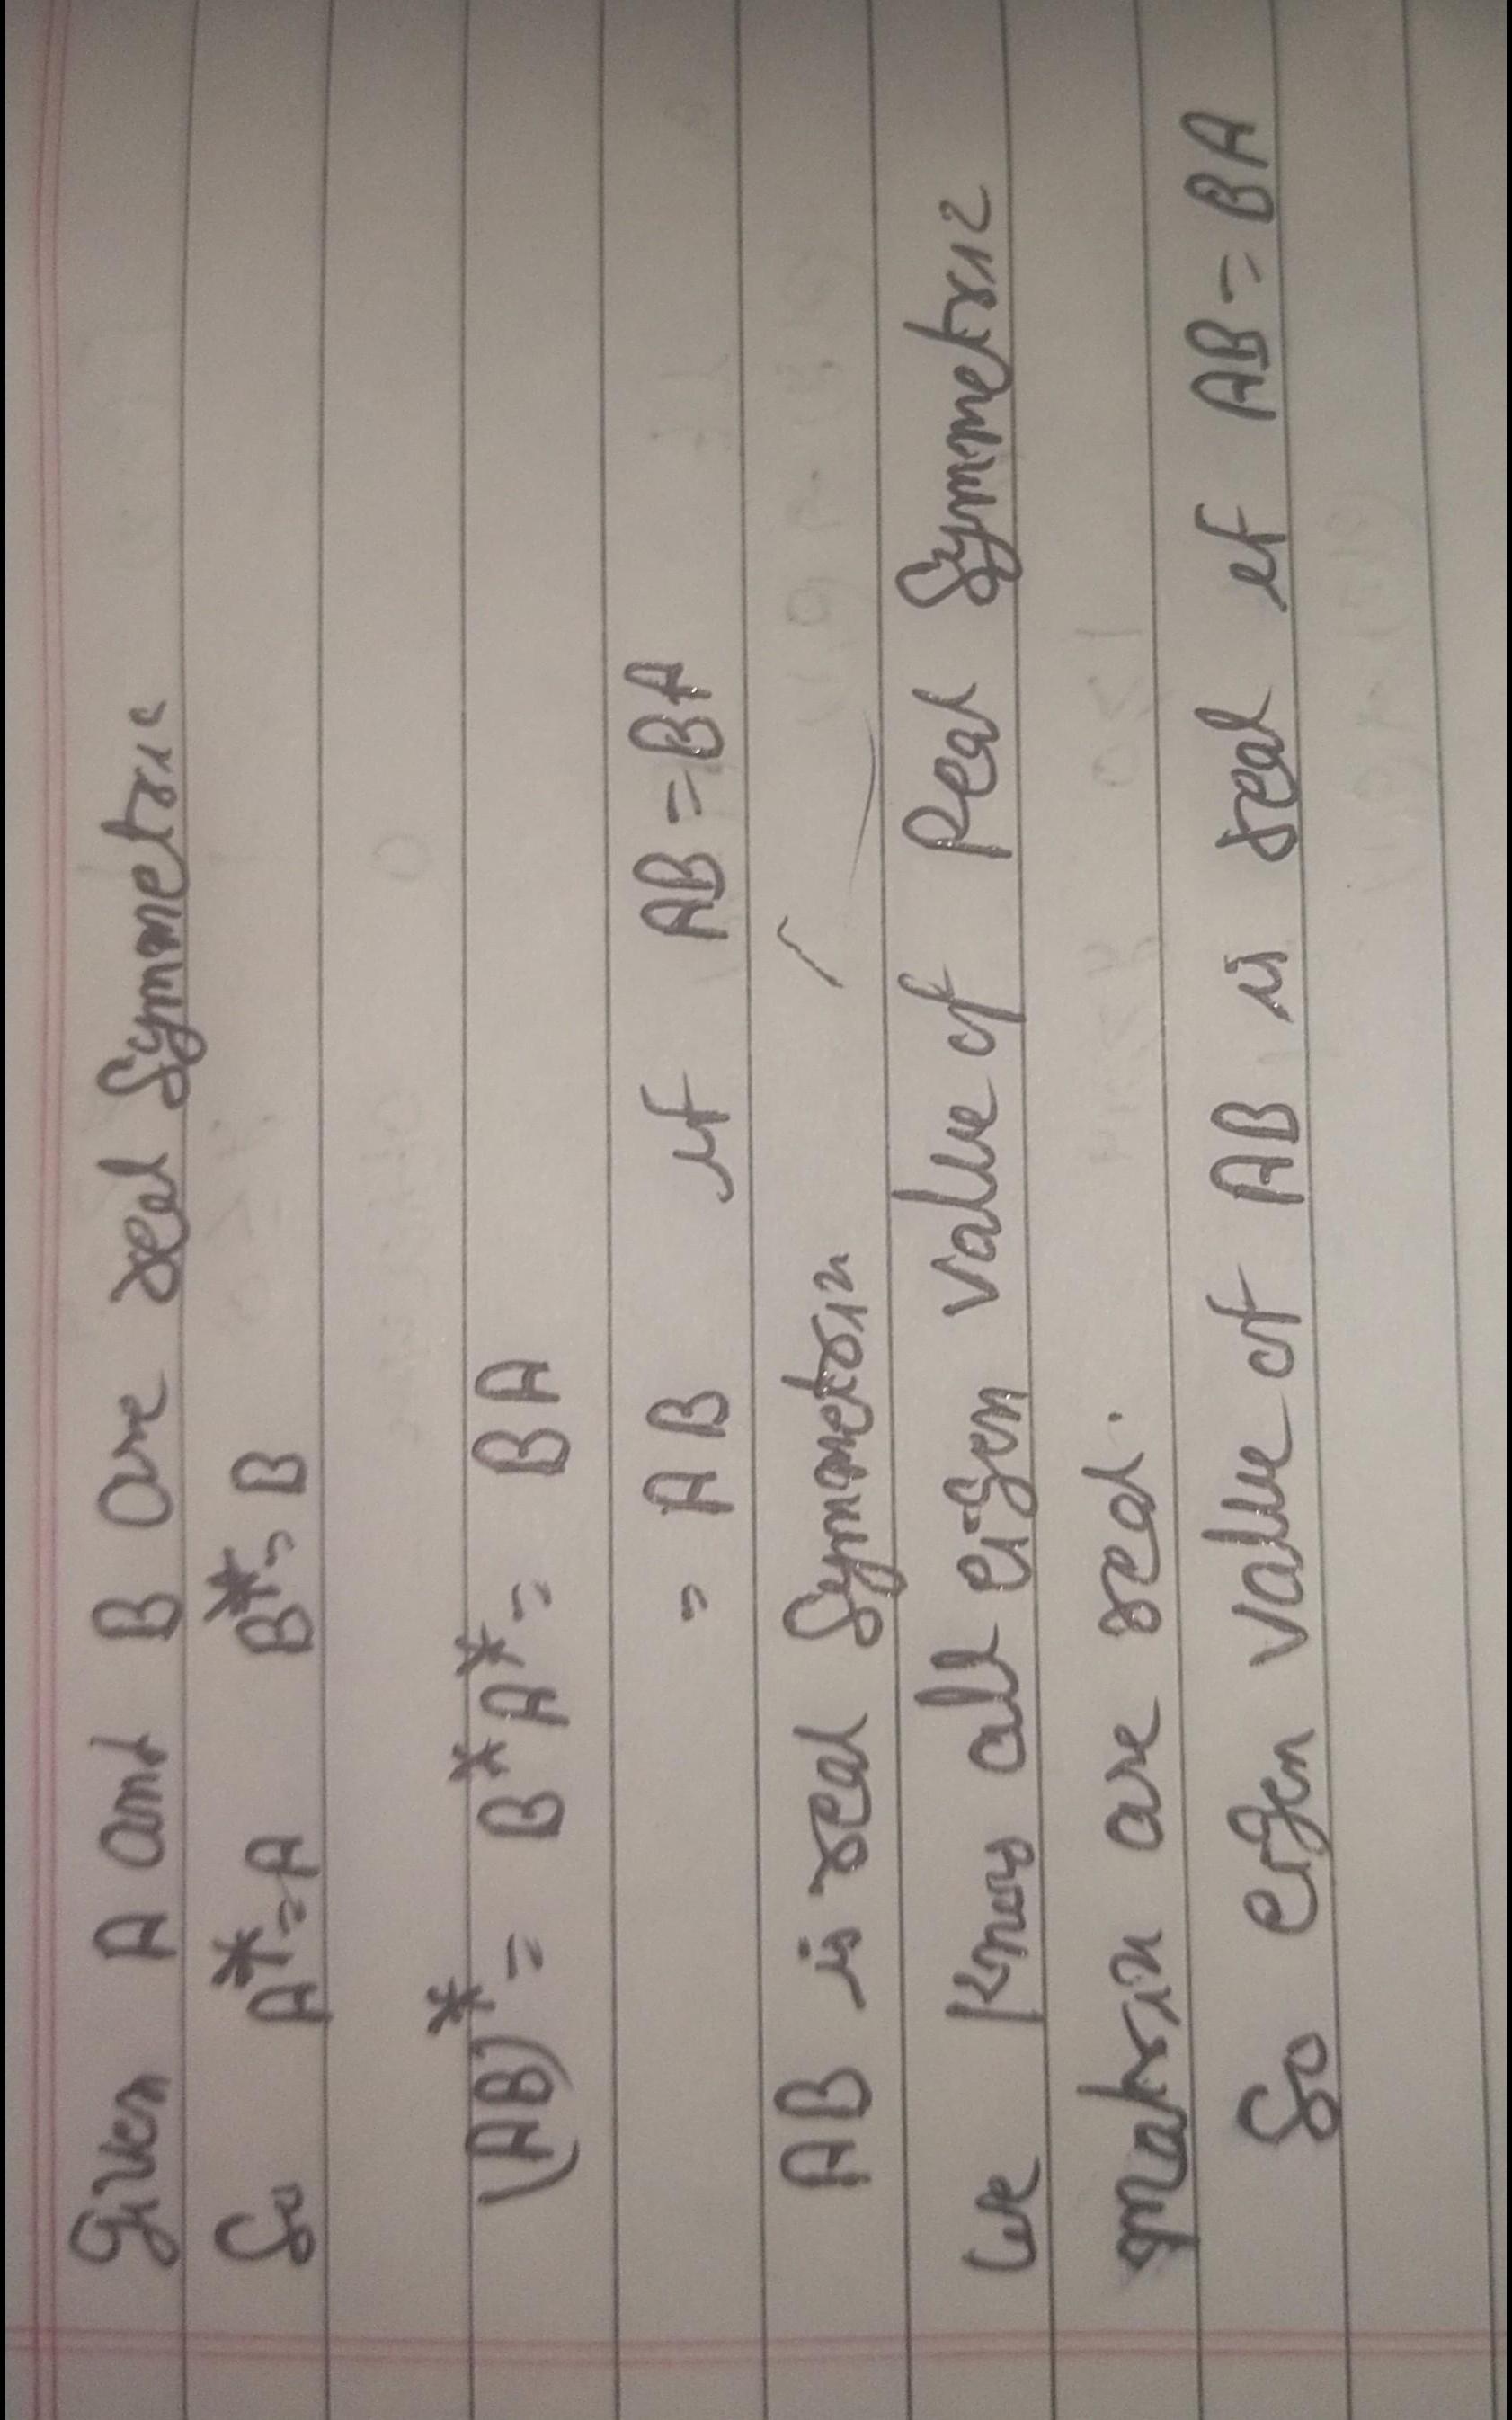 Given A and B are real Symmetric
So A* = A B* = B
(AB)* = B* A* = BA
= AB if AB = BA
AB is real Symmetrix
we know all eigen value of Real Symmetric
matrix are real.
So eigen value of AB is real if AB = BA